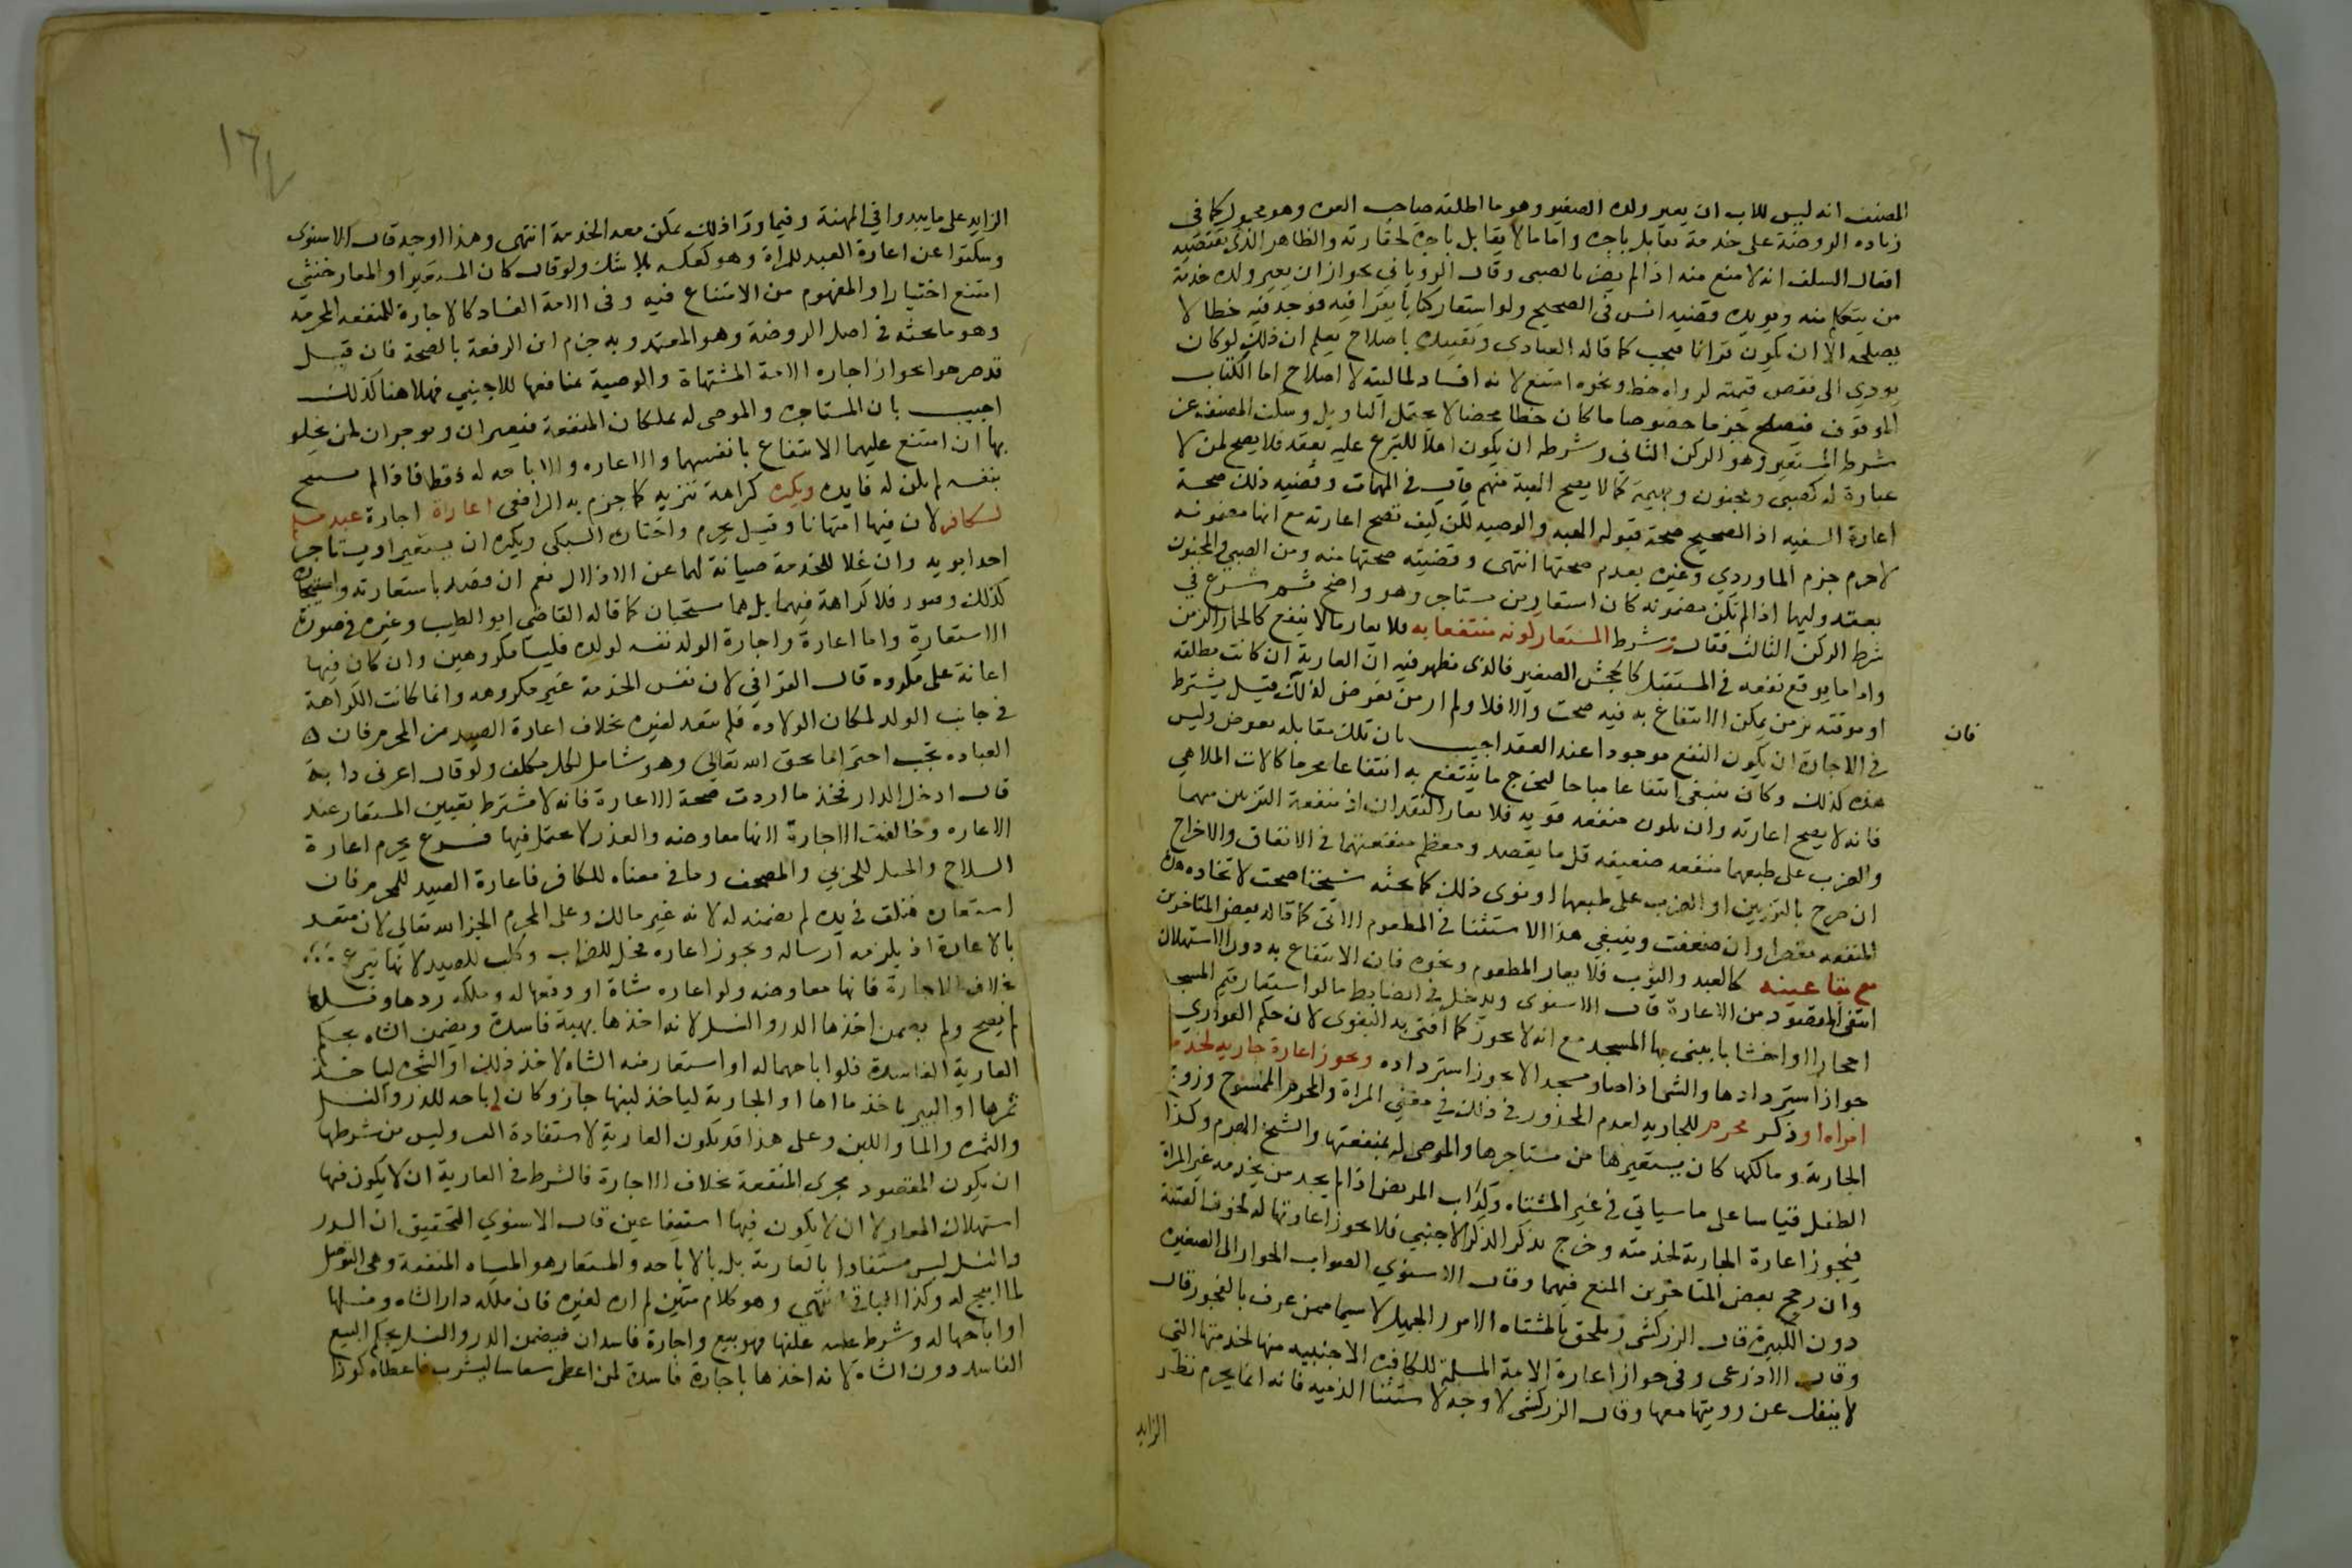 المصنف انه ليس للاب ان يعير ولده الصغير وهو ما اطلقه صاحب العدة وهو محمول كما في
زياده الروضة على خدمة تقابل باجرة واما ما لا يقابل باجرة لحقارته والظاهر الذي يقتضيه
افعال السلف انه لا منع منه اذا لم يضر بالصبي وقال الروياني يجوز ان يعير ولده خدمة
من يتعلم منه ويويده قضيه انس في الصحيح ولو استعار كتابا يقرا فيه فوجد فيه خطا لا
يصلحه الا ان يكون قرانا فيجب كما قاله العبادي وتقييده باصلاح يعلم ان ذلك لو كان
يودي الى نقص قيمته لرداه خط ونحوه امتنع لانه افساد لماليته لا اصلاح اما الكتاب
الموقوف فيصلح جزما خصوصا ما كان خطا محضا لا يحتمل التاويل وسكت المصنف عن
شرط المستعير وهو الركن الثاني وشرطه ان يكون اهلا للتبرع عليه بعقد فلا يصح لمن لا
عبارة له كصبي ومجنون وبهيمة كما لا يصح الهبة منهم قال في المهمات وقضيه ذلك صحة
اعارة السفيه اذ الصحيح صحة قبوله الهبه والوصيه لكن كيف تصح اعارته مع انها مضمونه
لا جرم جزم الماوردي وغيره بعدم صحتها انتهى وقضيته صحتها منه ومن الصبي والمجنون
بعقد وليها اذا لم تكن مضمونه كان استعار من مستاجر وهو واضح ثم شرع في
شرط الركن الثالث فقال وشرط المستعار كونه منتفعا به فلا يعار ما لا ينفع كالحمار الزمن
واما ما يوقع نفعه في المستقبل كالجحش الصغير فالذي يظهر فيه ان العارية ان كانت مطلقه
او موقته بزمن يمكن الانتفاع به فيه صحت والا فلا ولم ار من تعرض لذلك فان قيل يشترط
في الاجارة ان يكون النفع موجودا عند العقد اجيب بان تلك مقابله بعوض وليس
هذه كذلك وكان ينبغي انتفاعا مباحا ليخرج ما ينتفع به انتفاعا محرما كالات الملاهي
فانه لا يصح اعارته وان يكون منفعه قويه فلا يعار النقدان اذ منفعة التزين بهما
والضرب على طبعهما منفعه ضعيفه قل ما يقصد ومعظم منفعتهما في الانفاق والاخراج
ان صرح بالتزيين او الضرب على طبعهما او نوى ذلك كما بحثه شيخنا صحت لاتخاده هذه
المنفعه مقصدا وان ضعفت وينبغي هذا الاستثنا في المطعوم الاتي كما قاله بعض المتاخرين
مع بقا عينه كالعبد والثوب فلا يعار المطعوم ونحوه فان الانتفاع به دون الاستهلاك
انتفى المقصود من الاعارة قال الاسنوي ويدخل في الضابط ما لو استعار قيم المسجد
احجارا او اخشابا يبني بها المسجد مع انه لا يجوز كما افتى به البغوي لان حكم العواري
جواز استردادها والشي اذا صار مسجدا لا يجوز استرداده ويجوز اعارة جاريه لخدمة
امراه او ذكر محرم للجاريه لعدم المحذور في ذلك وفي معنى المراة والمحرم الممسوح وزوج
الجارية ومالكها كان يستعيرها من مستاجرها والموصى له بمنفعتها والشيخ الهرم وكذا
الطفل قياسا على ما سياتي في غير المشتهاه وكذاب المريض اذا لم يجد من يخدمه غير المراة
فيجوز اعارة الجارية لخدمته وخرج بذكر الذكر الاجنبي فلا يجوز اعارتها له لخوف الفتنة
وان رجح بعض المتاخرين المنع فيهما وقال الاسنوي الصواب الجواز الى الصغيره
دون الكبيرة قال الزركشي ويلحق بالمشتاه الامرد الجميل لا سيما ممن عرف بالفجور قال
وقال الاذرعي وفي جواز اعارة الامة المسلمة للكافره الاجنبيه منها لخدمتها التي
لا ينفك عن رويتها معها وقال الزركشي لا وجه لاستثنا الذميه فانه انما يحرم نظر
الزايد
فان
١٦٧
الزايد على ما يبدوا في المهنة وفيما ورا ذلك يمكن معه الخدمة انتهى وهذا اوجه قال الاسنوى
وسكتوا عن اعارة العبد للمراة وهو كعكسه بلا شك ولو قال كان المستعير او المعار خنثي
امتنع اختيارا والمفهوم من الامتناع فيه وفي الامة الفساد كالاجارة للمنفعه المحرمه
وهو ما بحثه في اصل الروضة وهو المعتمد وبه جزم ابن الرفعة بالصحة فان قيل
قد صرحوا بجواز اجاره الامة المشتهاة والوصية بمنافعها للاجنبي فهلا هنا كذلك
اجيب بان المستاجر والموصى له يملكان المنفعة فيعيران ويوجران لمن يخلو
بها ان امتنع عليهما الانتفاع بانفسهما والاعاره والاباحه له فقط فاذا لم يستبح
بنفسه لم يكن له فايده ويكره كراهة تنزيه كما جزم به الرافعي اعارة اجارة عبد مسلم
لكافر لان فيها امتهانا وقيل يحرم واختاره السبكي ويكره ان يستعير او يستاجر
احد ابويه وان علا للخدمة صيانة لهما عن الاذلال نعم ان قصد باستعارته واستيجاره
كذلك وصور فلا كراهة فيهما بل هما مستحبان كما قاله القاضي ابو الطيب وغيره في صورة
الاستعارة واما اعارة واجارة الولد نفسه لولده فليسا مكروهين وان كان فيها
اعانة على مكروه قال القرافي لان نفس الخدمة غير مكروهه وانما كانت الكراهة
في جانب الولد لمكان الولادة فلم يتعد لغيره بخلاف اعارة الصيد من المحرم فان
العباده تجب احترامها بحق الله تعالي وهو شامل لكل مكلف ولو قال اعرني دابة
قال ادخل الدار فخذ ما اردت صحة الاعارة فانه لا يشترط تعيين المستعار عند
الاعاره وخالفت الاجارة لانها معاوضه والغرر لا يحتمل فيها فرع يحرم اعارة
السلاح والخيل للحربي والمصحف وما في معناه للكافر فاعارة الصيد للمحرم فان
استعاره فتلف في يده لم يضمنه له لانه غير مالك وعلى المحرم الجزا لله تعالى لانه متعد
بالاعارة اذ يلزمه ارساله ويجوز اعاره فحل للضراب وكلب للصيد لانها تبرع
بخلاف الاجارة فانها معاوضه ولو اعاره شاة او دفعها له وملكه درها ونسلها
لم يصح ولم يضمن اخذها الدر والنسل لانه اخذها بهبة فاسدة ويضمن الشاه بحكم
العارية الفاسدة فلو اباحهما له او استعار منه الشاه لاخذ ذلك او الشجره لياخذ
ثمرها او البير ياخذ ماءها او الجارية لياخذ لبنها جاز وكان اباحه للدر والنسل
والثمره والما واللبن وعلى هذا قد يكون العارية لاستفادة العين وليس من شرطها
ان يكون المقصود مجرى المنفعة بخلاف الاجارة فالشرط في العارية ان لا يكون فيها
استهلاك المعار لا ان لا يكون فيها استيفا عين قال الاسنوي التحقيق ان الدر
والنسل ليس مستفادا بالعارية بل بالاباحه والمستعار هو الشاه المنفعة وهى التوصل
لما ابيح له وكذا الباقي انتهى وهو كلام متين لم اره لغيره فان ملكه دار الشاه ونسلها
او اباحها له وشرط عليه علفها فهو بيع واجارة فاسدان فيضمن الدر والنسل بحكم البيع
الفاسد دون الشاة لانه اخذها باجارة فاسدة لمن اعطى سقا ليشرب فاعطاه كوزا